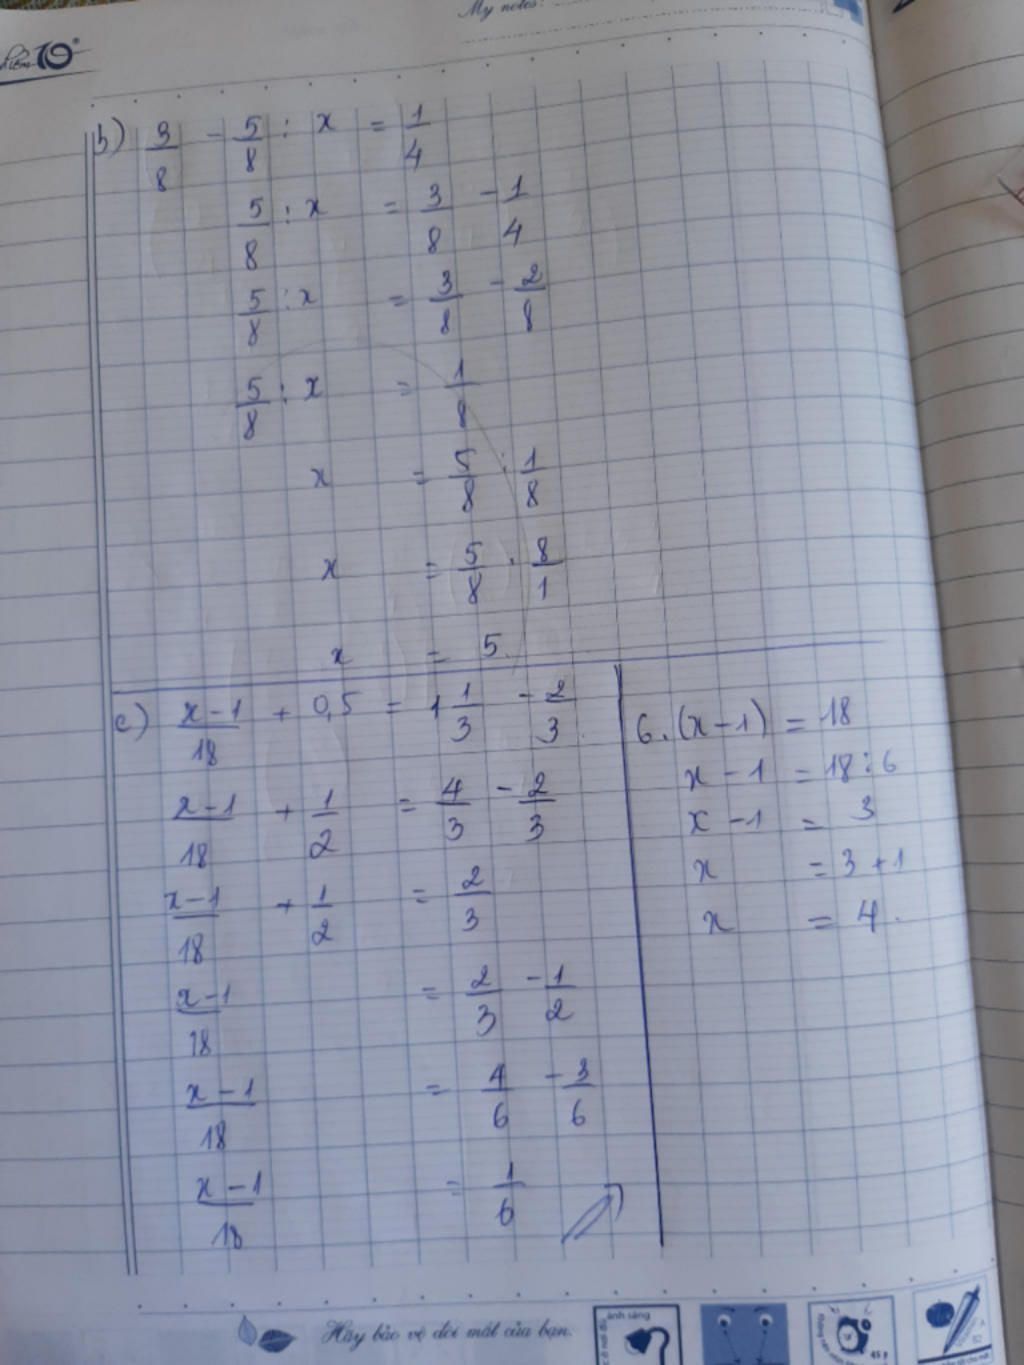 My notes:
10
b) 3/8 - 5/8 : x = 1/4
5/8 : x = 3/8 - 1/4
5/8 : x = 3/8 - 2/8
5/8 : x = 1/8
x = 5/8 : 1/8
x = 5/8 . 8/1
x = 5
c) x-1/18 + 0,5 = 1 1/3 - 2/3
x-1/18 + 1/2 = 4/3 - 2/3
x-1/18 + 1/2 = 2/3
x-1/18 = 2/3 - 1/2
x-1/18 = 4/6 - 3/6
x-1/18 = 1/6
6.(x-1) = 18
x-1 = 18:6
x-1 = 3
x = 3+1
x = 4.
Hãy bảo vệ đôi mắt của bạn.
ánh sáng
45 P